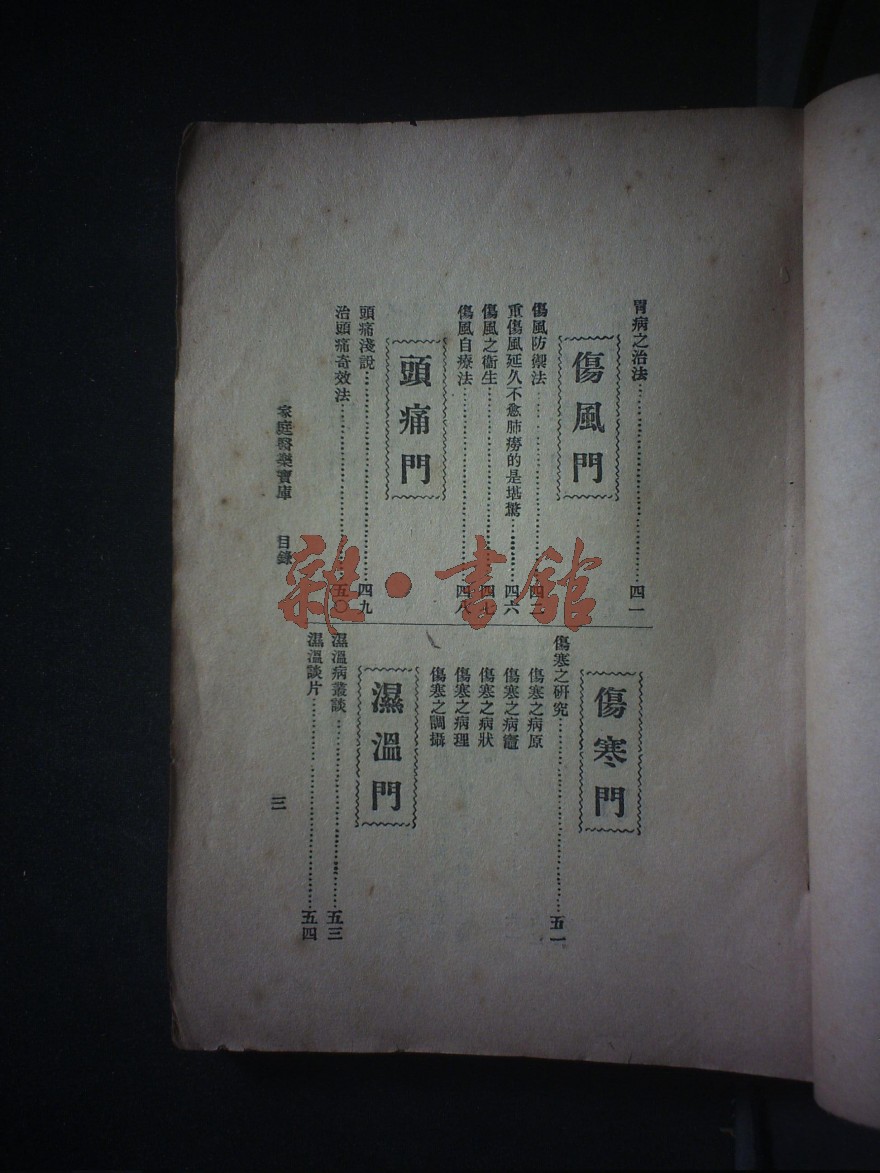 胃病之治法……四一
傷風門
傷風防禦法……四三
重傷風延久不愈肺癆的是堪驚……四六
傷風之衞生……四七
傷風自療法……四八
頭痛門
頭痛淺說……四九
治頭痛奇效法……五〇
傷寒門
傷寒之研究……五一
傷寒之病原
傷寒之病竈
傷寒之病狀
傷寒之病理
傷寒之調攝
濕溫門
濕溫病叢談……五三
濕溫談片……五四
家庭醫藥寶庫 目錄 三
雜·書館